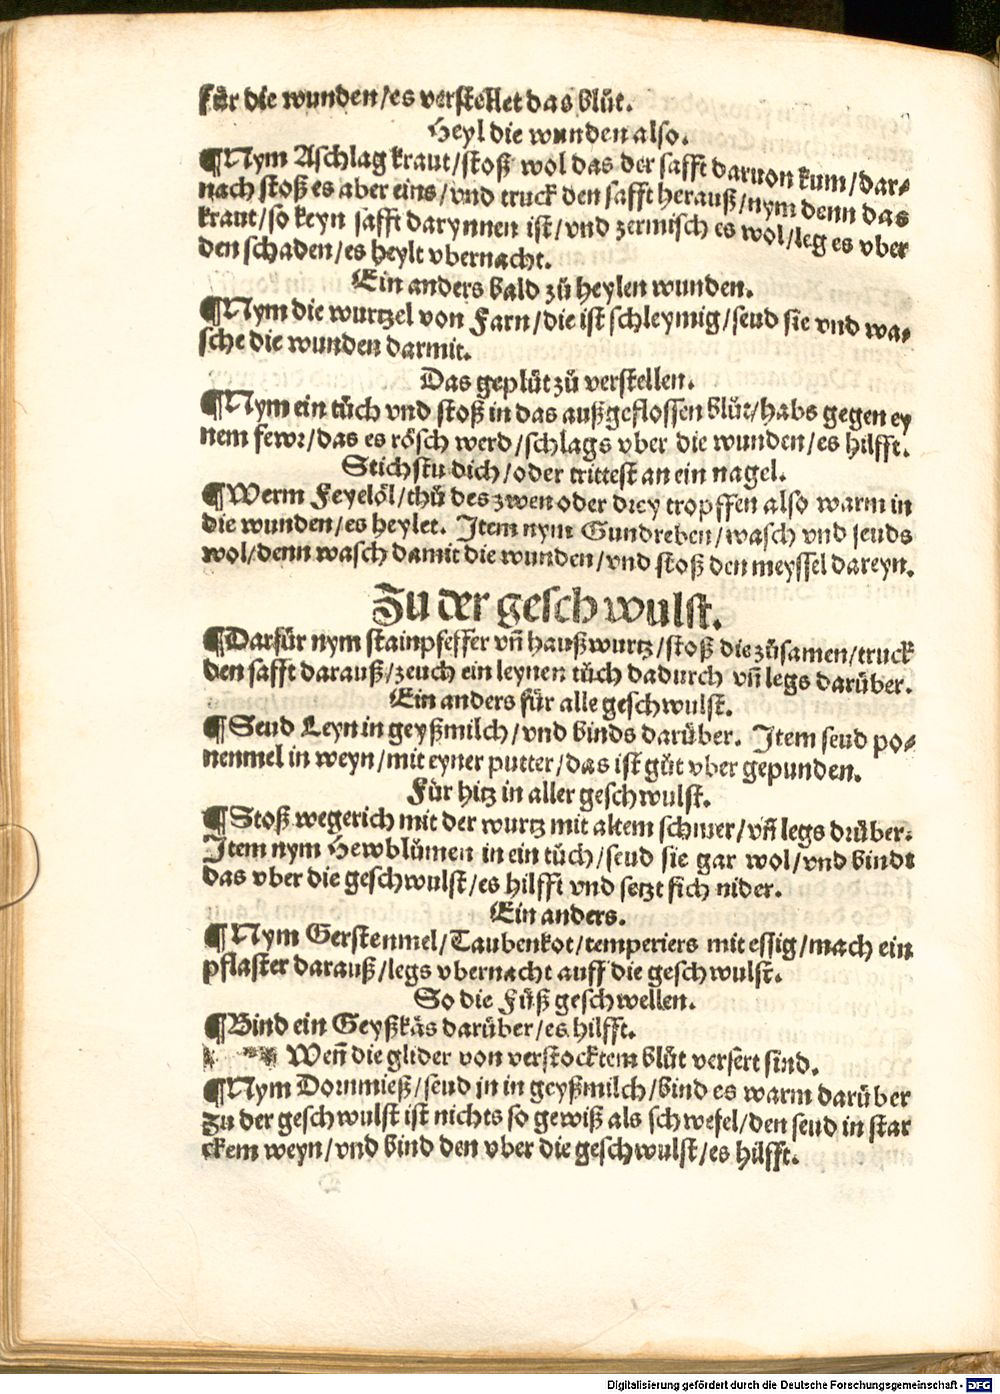 für die wunden/es verstellet das blůt.
Heyl die wunden also.
¶Nym Aschlag kraut/stoß wol das der safft daruon kum/dar⸗
nach stoß es aber eins/vnd truck den safft herauß/nym denn das
kraut/so keyn safft darynnen ist/vnd zermisch es wol/leg es vber
den schaden/es heylt vbernacht.
Ein anders bald zů heylen wunden.
¶Nym die wurtzel von Farn/die ist schleymig/seud sie vnd wa⸗
sche die wunden darmit.
Das geplůt zů verstellen.
¶Nym ein tůch vnd stoß in das außgeflossen blůt/habs gegen ey
nem fewr/das es rösch werd/schlags vber die wunden/es hilfft.
Stichstu dich/oder trittest an ein nagel.
¶Werm Feyelöl/thů des zwen oder drey tropffen also warm in
die wunden/es heylet. Item nym Gundreben/wasch vnd seuds
wol/denn wasch damit die wunden/vnd stoß den meyssel dareyn.
Zu der geschwulst.
¶Darfür nym stainpfeffer vñ haußwurtz/stoß die zůsamen/truck
den safft darauß/zeuch ein leynen tůch dadurch vñ legs darüber.
Ein anders für alle geschwulst.
¶Seud Leyn in geyßmilch/vnd binds darüber. Item seud po⸗
nenmel in weyn/mit eyner putter/das ist gůt vber gepunden.
Für hitz in aller geschwulst.
¶Stoß wegerich mit der wurtz mit altem schmer/vñ legs drüber.
Item nym Hewblůmen in ein tůch/seud sie gar wol/vnd bindt
das vber die geschwulst/es hilfft vnd setzt sich nider.
Ein anders.
¶Nym Gerstenmel/Taubenkot/temperiers mit essig/mach ein
pflaster darauß/legs vbernacht auff die geschwulst.
So die Füß geschwellen.
¶Bind ein Geyßkäs darüber/es hilfft.
Weñ die glider von verstocktem blůt versert sind.
¶Nym Dornmieß/seud jn in geyßmilch/bind es warm darüber
zu der geschwulst ist nichts so gewiß als schwefel/den seud in star
ckem weyn/vnd bind den vber die geschwulst/es hilfft.
Digitalisierung gefördert durch die Deutsche Forschungsgemeinschaft - DFG